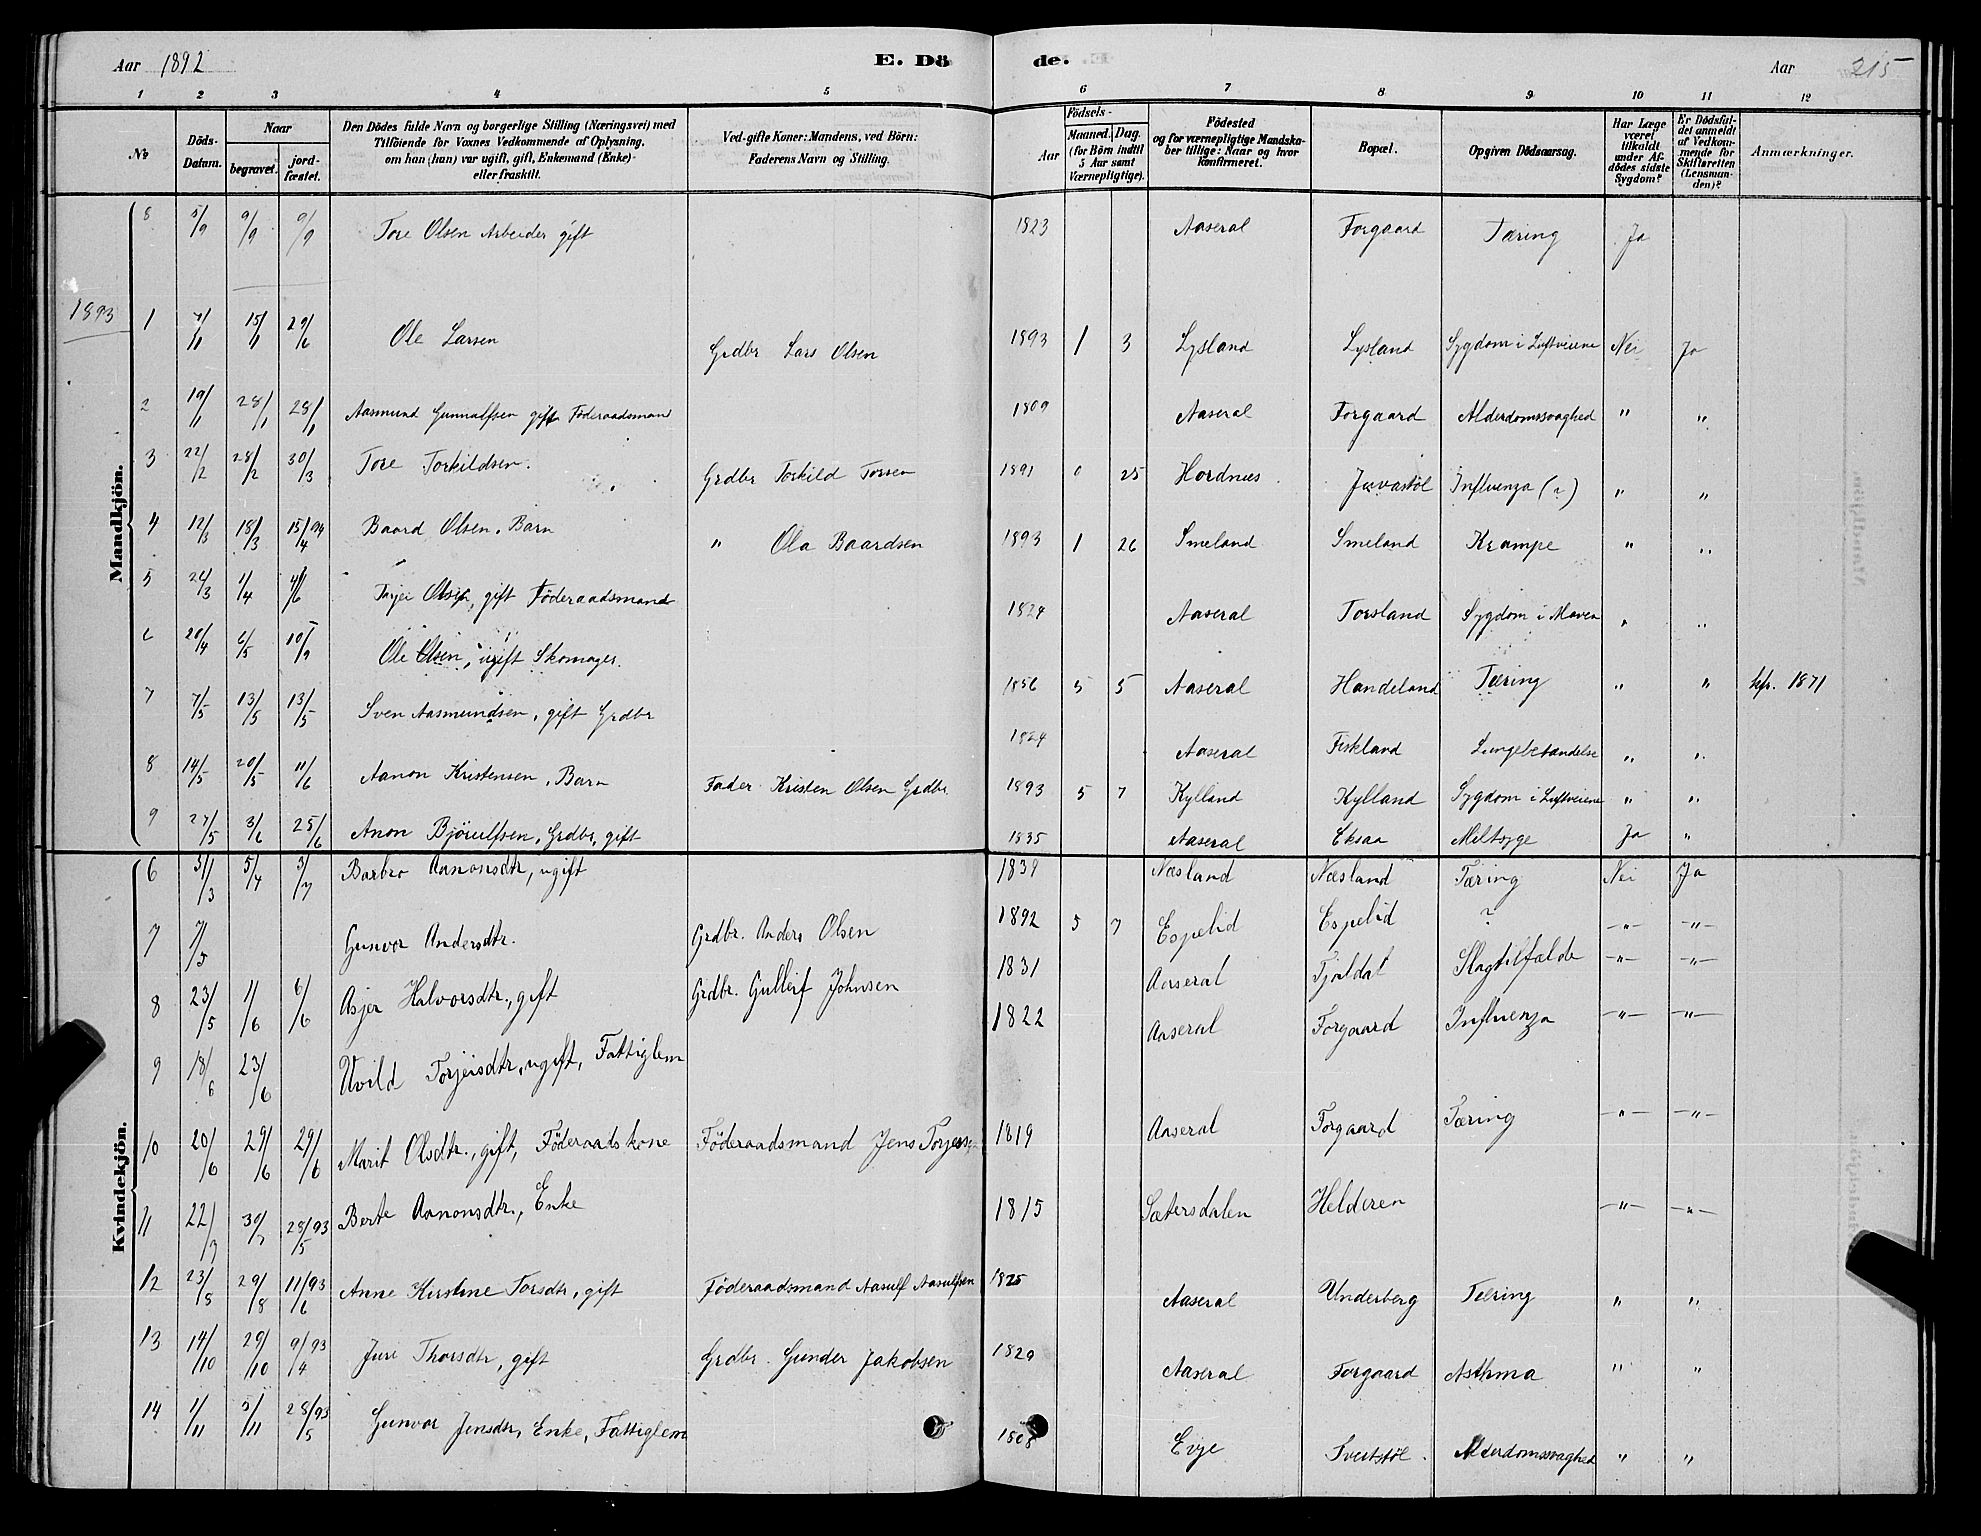 Aar 1892 E. Dö de. Aar 215
1 2 3 4 5 6 7 8 9 10 11 12
No Döds-Datum. Naar begravet. jordfæstet. Den Dödes fulde Navn og borgerlige Stilling (Næringsvei) med Tilföiende for Voxnes Vedkommende af Oplysning, om han (hun) var ugift, gift, Enkemand (Enke) eller fraskilt. Ved gifte Koner: Mandens, ved Börn: Faderens Navn og Stilling. Aar Födsels- Maaned. Dag. (for Börn indtil 5 Aar samt Værnepligtige). Födested og for værnepligtige Mandskaber tillige: Naar og hvor konfirmeret. Bopæl. Opgiven Dödsaarsag. Har Læge været tilkaldt under Afdödes sidste Sygdom? Er Dödsfaldet anmeldt af Vedkommende for Skifteretten (Lensmanden)? Anmærkninger.
Mandkjön.
8 5/9 9/9 9/9 Tore Olsen Arbeider gift 1823 Aaseral Forgaard Tæring Ja
1893
1 7/1 15/1 29/6 Ole Larsen Grdbr Lars Olsen 1893 1 3 Lysland Lysland Sygdom i Luftveiene Nei Ja
2 19/1 28/1 28/1 Aasmund Gunnulfsen gift Föderaadsmand 1809 Aaseral Forgaard Alderdomssvaghed " "
3 22/2 28/2 30/3 Tore Torkildsen. Grdbr Torkild Torsen 1891 0 25 Hordnes Juvastöl Influenza (?) " "
4 12/3 18/3 15/4 94 Baard Olsen, Barn " Ola Baardsen 1893 1 26 Smeland Smeland Krampe " "
5 26/3 1/4 4/6 Tarjei Olsen, gift Föderaadsmand 1824 Aaseral Torsland Sygdom i Maven " "
6 20/4 6/5 10/9 Ole Olsen, ugift Skomager. 1856 5 5 Aaseral Handeland Tæring " " kfr. 1871
7 7/5 13/5 13/5 Sven Aasmundsen, gift Grdbr 1824 Aaseral Fiskland Lungebetændelse " "
8 14/5 20/5 11/6 Aanon Kristensen, Barn Fader Kristen Olsen Grdbr. 1893 5 7 Kylland Kylland Sygdom i Luftveiene " "
9 27/5 3/6 25/6 Anon Björulfsen, Grdbr, gift 1835 Aaseral Eksaa Miltsyge Ja "
Kvindekjön.
6 31/3 5/4 3/7 Barbro Aanonsdtr, ugift 1839 Næsland Næsland Tæring Nei Ja
7 7/5 Gunvor Andersdtr. Grdbr. Anders Olsen 1892 5 7 Espelid Espelid ? -"- -"-
8 23/5 1/6 6/6 Asjer Halvorsdtr., gift Grdbr. Gulleif Johnsen 1831 Aaseral Tjaldal Slagtilfælde -"- -"-
9 18/6 23/6 Uvild Torjeisdtr, ugift, Fattiglem 1822 Aaseral Forgaard Influenza -"- -"-
10 20/6 29/6 29/6 Marit Olsdtr., gift, Föderaadskone Föderaadsmand Jens Torjessen 1819 Aaseral Forgaard Tæring -"- -"-
11 22/7 30/7 28/5 93 Berte Aanonsdtr., Enke 1815 Sætersdalen Helderen -"- -"-
12 23/8 29/8 11/6 93 Anne Kirstine Torsdtr, gift Föderaadsmand Aasulf Aasulfsen 1825 Aaseral Underberg Tæring " "
13 14/10 29/10 9/4 93 Juri Thorsdtr, gift Grdbr. Gunder Jakobsen 1829 Aaseral Forgaard Asthma " "
14 1/11 5/11 28/5 93 Gunvor Jensdtr, Enke, Fattiglem 1808 Evje Sveitstöl Alderdomssvaghed " "